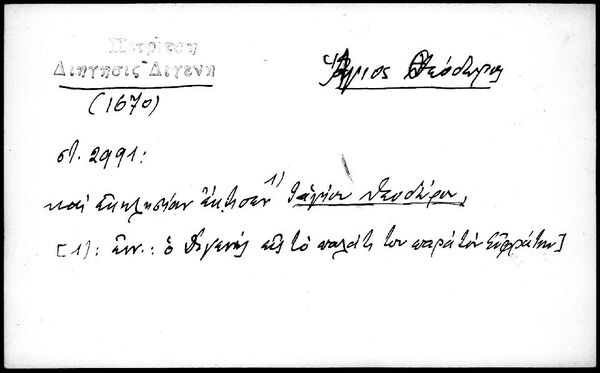 Πετρίτση
Διήγησις Διγενή
(1670)
Ἅγιος Θεόδωρος
στ. 2991:
καί ἐκκλησίαν ἔκτισεν 1) τ' ἁγίου Θεοδώρου,
[1): ἐνν.: ὁ Διγενής εἰς τό παλάτι του παρά τόν Εὐφράτην]